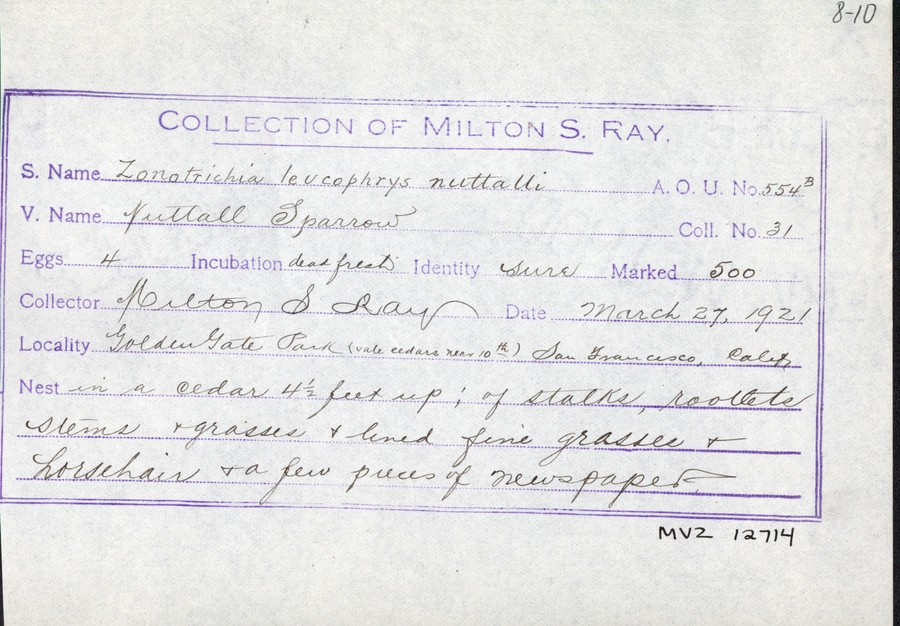 8-10
COLLECTION OF MILTON S. RAY.
S. Name Zonotrichia leucophrys nuttalli A. O. U. No. 554B
V. Name Nuttall Sparrow Coll. No. 31
Eggs 4 Incubation fresh Identity sure Marked 500
Collector Milton S Ray Date March 27, 1921
Locality Golden Gate Park (vale cedars near 10th) San Francisco, Calif
Nest in a cedar 4½ feet up; of stalks, rootlets
stems + grasses + lined fine grasses +
horsehair + a few pieces of newspaper
MVZ 12714